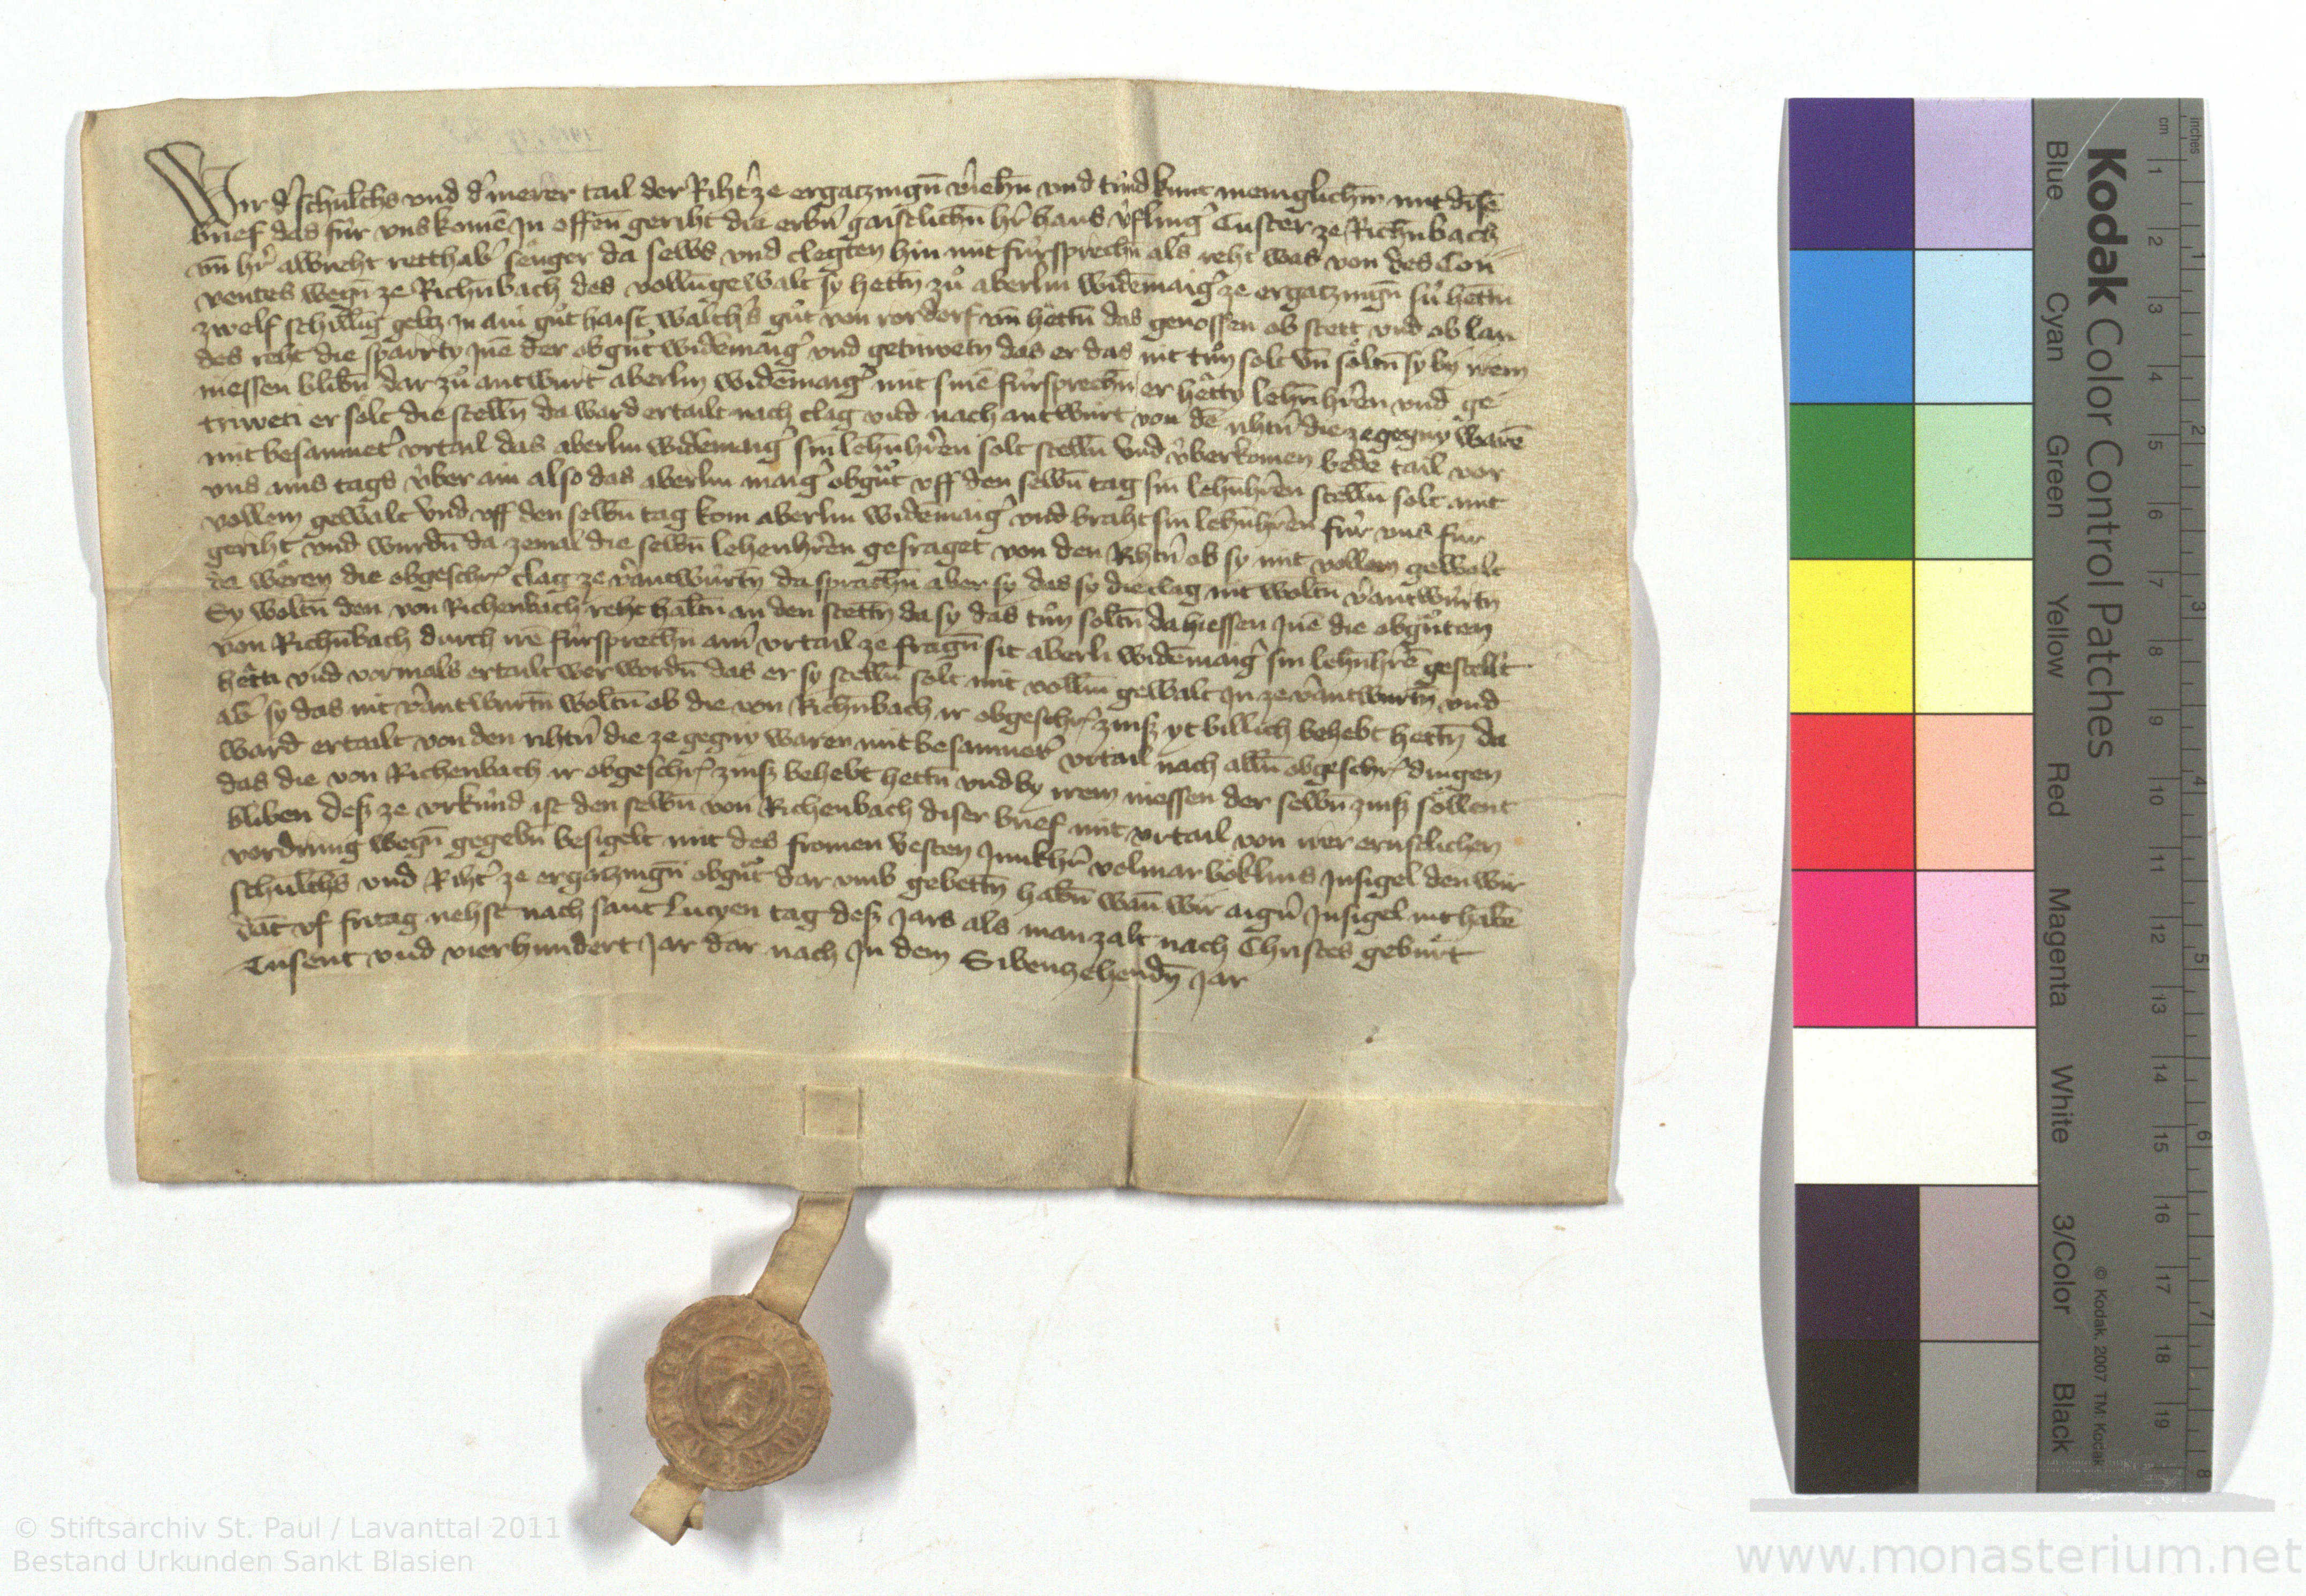 Wir d' schulths vnd d' merer tail der Riht' ze ergatzingn̄ v'iehn̄ vnd tůnd kunt meniglichem mit disē
brief das für vns komē Jn offen̄ geriht die erbn̄ gaistlichn̄ hr̄ hans Custer ze Richn̄bach
vn̄ hr̄ albreht senger da selbs vnd clegten hin mit fürsprechn̄ als reht was von des Con
ventes wegn̄ ze Richn̄bach des volln̄ gewalt sy hettn̄ zů aberlin widemaig' ze ergatzingn̄ sü hettn̄
zwelf schilling geltz Jn ain gůt haist walth's gůt von rordorf vn̄ hettn̄ das genossen ob stett vnd ob lan
des reht die sparrty Jnē der obgn̄t widemaig' vnd getruwetn das er das nit tůn solt vn̄ söltn̄ sy by irem
niessen blibn̄ dar zů antwurt aberlin widēmaig' mit sinē fürsprechn̄ er hetty lehn̄hr̄en vnd ge
truweti er sölt die stelln̄ da ward ertailt nach clag vnd nach antwurt von dē rihtn̄ die ze gegny warē
mit besamnet' vrtail das aberlin widemaig' sin lehn̄hr̄en solt stelln̄ vnd v̈berkomen bede tail vor
vns ains tags v̈ber ain also das aberlin maig' obgn̄t vff den selbn̄ tag sin lehn̄hr̄en stelln̄ solt mit
vollem gewalt vnd vff den selbn̄ tag kom aberlin widemaig' vnd braht sin lehn̄hr̄en für vns für
geriht vnd wurdn̄ da zemal die selbn̄ lehenhr̄en gefraget von den Rihtn̄ ob sy mit vollem gewalt
da weren die obgeschr' clag ze v'antwürtn̄ da sprachn̄ aber sy das sy die clag nit woltn̄ v'antwürtn
Sy woltn̄ den von Richenbach reht haltn̄ an den stettn̄ da sy das tůn soltn̄ da hiessen Jnē die obgn̄ten
von Richn̄bach durch irē fürsprechn̄ ain' vrtail ze fragn̄ sit aberli widēmaig' sin lehn̄hr̄ē gestellt
hetti vnd vormals ertailt wer wordn̄ das er sy stelln̄ solt mit vollm̄ gewalt Jn ze v'antwurtn̄ vnd
ab' sy das nit v'antwurtn̄ woltn̄ ob die von Richn̄bach ir obgeschr' zinß yt billich behebt hettn̄ da
ward ertailt von den rihtn̄ die ze gegny waren mit besamnet' vrtail nach alln̄ obgeschr' dingen
das die von Richenbach ir obgeschr' zinß behebt hettn̄ vnd by irem niessen der selbn̄ zinß söllent
bliben deß ze vrkünd ist den selbn̄ von Richenbach diser brief mit vrtail von irer ernstlichen
vordrung wegn̄ gegebn̄ besigelt mit des fromen vesten Junkhr̄ volmar böklins Jnsigel den wir
schulths vnd Riht' ze ergatzingn̄ obgn̄t dar vmb gebettn̄ habn̄ wan̄ wir aign̄ Jnsigel nit habē
dāt vf fritag nehst nach sant Lucyen tag deß Jars als man zalt nach Christes geburt
Tusent vnd vierhundert Jar dar nach Jn dem Sibenzehendn̄ Jar
Kodak Color Control Patches
Blue Cyan Green Yellow Red Magenta White 3/Color Black
© Kodak, 2007 TM: Kodak
cm 1 2 3 4 5 6 7 8 9 10 11 12 13 14 15 16 17 18 19
inches 1 2 3 4 5 6 7 8
© Stiftsarchiv St. Paul / Lavanttal 2011
Bestand Urkunden Sankt Blasien
www.monasterium.net